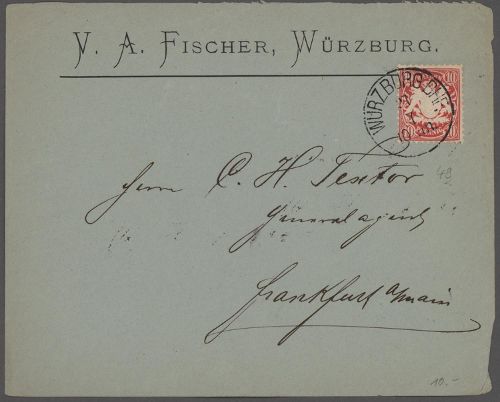 V. A. FISCHER, WÜRZBURG.
WÜRZBURG BHF.
10
Herrn C. H. Textor
49
Generalagent
Frankfurt a/main
10.-